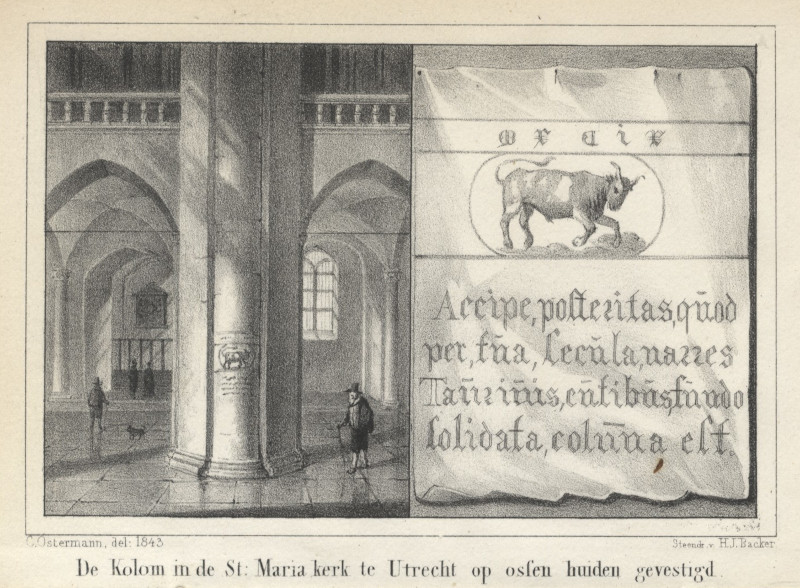 M X C i X
Accipe, posteritas, qūod
per, tūa, secūla, narres
Taūrinīs, cūtibūs, fūndo
solidata, colūna est.
C. Ostermann, del: 1843
Steendr. v. H.J. Backer
De Kolom in de St: Maria kerk te Utrecht op ossen huiden gevestigd.